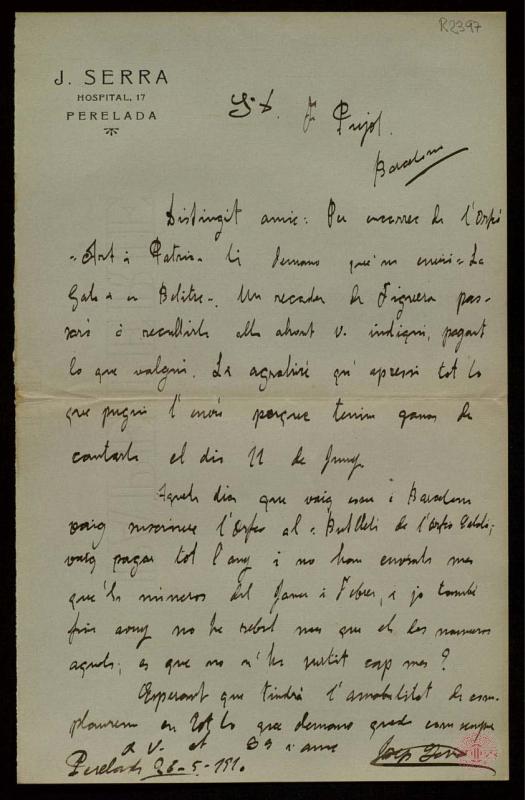 R2397
J. SERRA
HOSPITAL, 17
PERELADA
Sr D. Fr Pujol.
Barcelona
Distingit amic: Per encarrec de l'Orfeó
"Art i Patria" li demano que'm envii "La
Gala den Belitre". Un recader de Figueras pas-
sará á recullirla allá ahont V. indiqui, pagant
lo que valgui. Li agrahiré qu'apressi tot lo
que pugui l'envio perque tenim ganas de
cantarla el dia 11 de Juny.
Aquells dias que vaig esser á Barcelona
vaig suscriure l'Orfeó al "Butlletí de l'Orfeó Catalá";
vaig pagar tot l'any i no han enviat mes
que'ls números del Janer i Febrer, i jo també
fins avuy no he rebut mes que els dos numeros
aquells; es que no n'ha surtit cap mes?
Esperant que tindrá l'amabilitat de com-
plaurem en tot lo que demano queda com sempre
a V. af. SS i amic Josep Serra
Perelada 26-5-1910